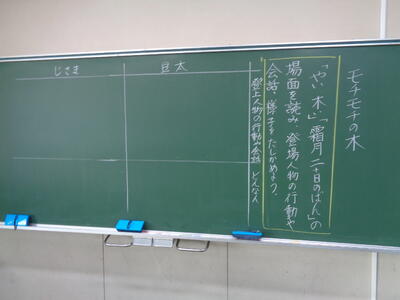 モチモチの木
「やい、木ぃ」「霜月二十日のばん」の
場面を読み、登場人物の行動や
会話、様子をたしかめよう。
登上人物の行動や会話 どんな人
豆太
じさま